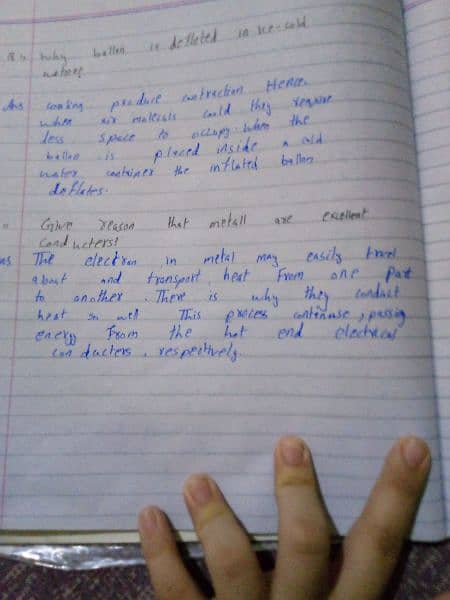 Q:  Why ballon is deflated in ice-cold
water?
Ans cooling produce contraction Hence
when air moleculs could they require
less space to occupy. when the
ballon is placed inside a cold
water container the inflated ballon
deflates.
Give reason that metall are excellent
conducters!
The electron in metal may easily travel
about and transport heat From one part
to another. There is why they conduct
heat so well This process continuse, passing
energy From the hot end electrical
conducters, respectively.